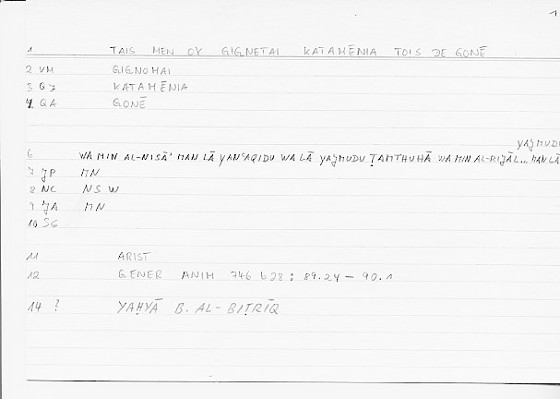 1
1 TAIS MEN OY GIGNETAI KATAMĒNIA TOIS DE GONĒ
2 VM GIGNOMAI
3 QJ KATAMĒNIA
4 QA GONĒ
YAǦMUDU
6 WA MIN AL-NISĀʾ MAN LĀ YANʿAQIDU WA LĀ YAǦMUDU ṬAMTHUHĀ WA MIN AL-RIJĀL... MAN LĀ
7 JP MN
8 NC NSW
9 JA MN
10 SG
11 ARIST
12 GENER ANIM 746 b28 : 89.24 – 90.1
14 ? YAḤYĀ B. AL-BIṬRĪQ